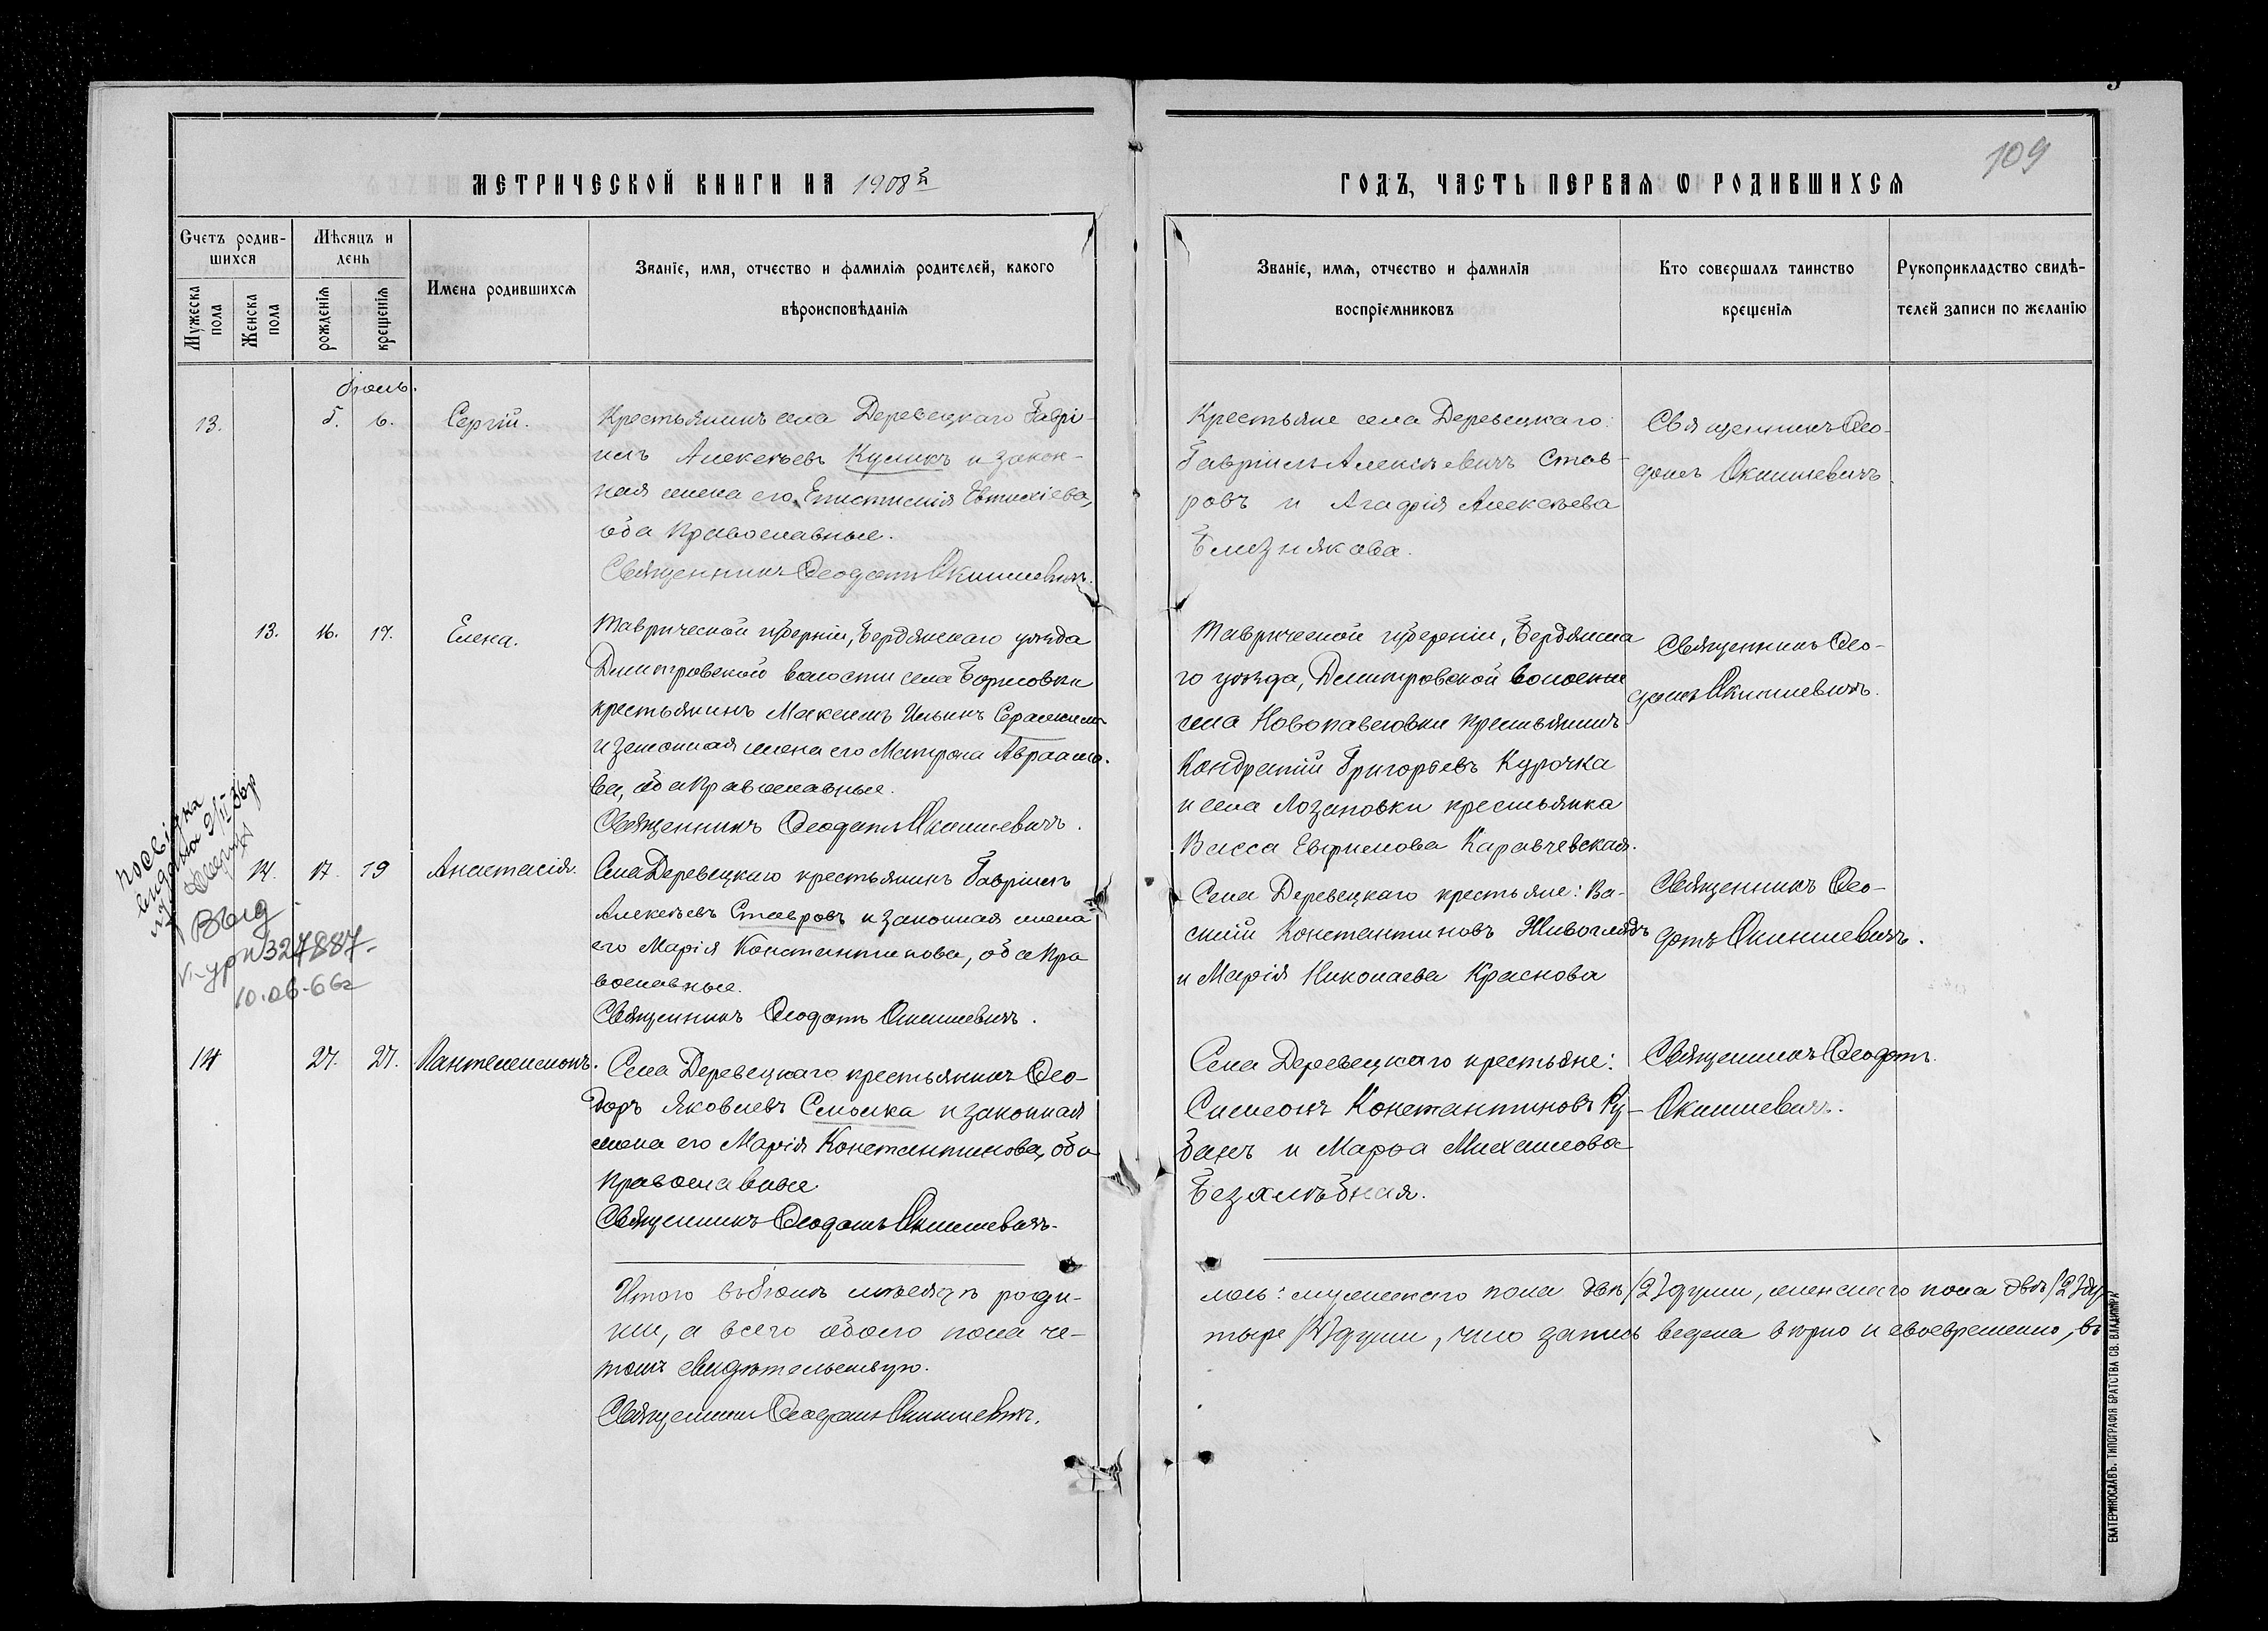 109
МЕТРИЧЕСКОЙ КНИГИ НА 1908й
ГОДЪ, ЧАСТЬ ПЕРВАЯ Ѡ РОДИВШИХСЯ
Счетъ родив-
шихся
Мѣсяцъ и
день
Мужеска
пола
Женска
пола
рожденія
крещенія
Имена родившихся
Званіе, имя, отчество и фамилія родителей, какого
вѣроисповѣданія
Званіе, имя, отчество и фамилія
воспріемниковъ
Кто совершалъ таинство
крещенія
Рукоприкладство свидѣ-
телей записи по желанію
Іюль.
13. 5. 6. Сергій.
Крестьянинъ села Деревецкаго Гаврі-
илъ Алексѣевъ Куликъ и закон-
ная жена его Епистимія Евтихіева,
оба православные.
Священникъ Ѳеодотъ Окишевичъ.
Крестьяне села Деревецкаго:
Гавріилъ Алексѣевичъ Став-
ровъ и Агафія Алексѣева
Близнякова.
Священникъ Ѳео-
дотъ Окишевичъ.
13. 16. 17. Елена.
Таврической губерніи, Бердянскаго уѣзда
Димитровской волости села Борисовки
крестьянинъ Максимъ Ильинъ
и законная жена его Матрона Авраамо-
ва, оба православные.
Священникъ Ѳеодотъ Окишевичъ.
Таврической губерніи, Бердянска
го уѣзда, Димитровской волости
села Новопавловки крестьянинъ
Кондратій Григорьевъ Курочка
и села Лозановки крестьянка
Васса Евфимова Каравчевская.
Священникъ Ѳео-
дотъ Окишевичъ.
посвідка
видана 2/II 36р
Выд
N327887.
10.06.66г
14. 17. 19 Анастасія.
Села Деревецкаго крестьянинъ Гавріилъ
Алексѣевъ Ставровъ и законная жена
его Марія Константинова, оба пра
вославные.
Священникъ Ѳеодотъ Окишевичъ.
Села Деревецкаго крестьяне: Ва-
силій Константиновъ Живоглядъ
и Марія Николаева Краснова
Священникъ Ѳео-
дотъ Окишевичъ.
14 27. 27. Пантелеимонъ.
Села Деревецкаго крестьянинъ Ѳео-
доръ Яковлевъ Смолка и законная
жена его Марія Константинова, оба
православные
Священникъ Ѳеодотъ Окишевичъ.
Села Деревецкаго крестьяне:
Симеонъ Константиновъ Ру-
банъ и Марѳа Михаилова
Безхлѣбная.
Священникъ Ѳеодотъ
Окишевичъ.
Итого въ Іюлѣ мѣсяцѣ роди-
лось: мужескаго пола двѣ (2) души, женскаго пола двѣ (2) ду
ши, а всего обоего пола че-
тыре (4) души, что запись ведена вѣрно и своевременно, въ
томъ свидѣтельствую.
Священникъ Ѳеодотъ Окишевичъ.
ЕКАТЕРИНОСЛАВЪ. ТИПОГРАФІЯ БРАТСТВА СВ. ВЛАДИМІРА